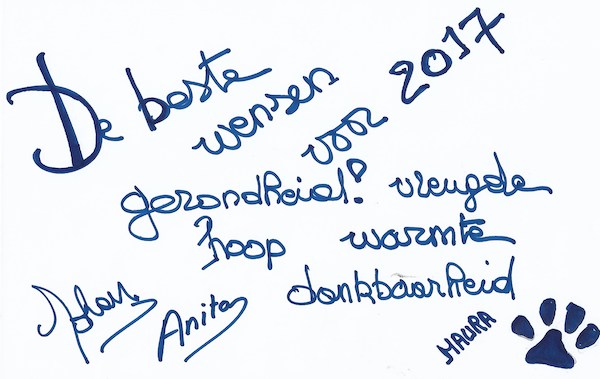 De beste
wensen
voor 2017
gezondheid! vreugde
hoop warmte
dankbaarheid
Johan
Anita
MAURA